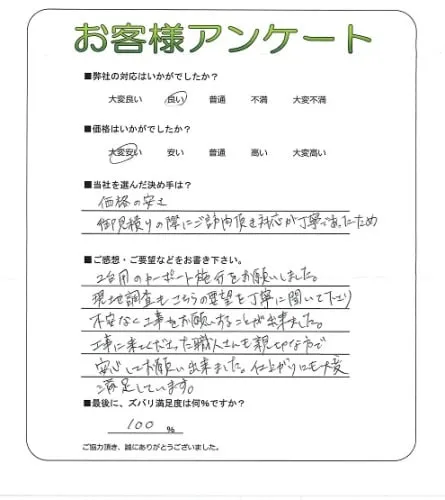 お客様アンケート
■弊社の対応はいかがでしたか？
大変良い 良い 普通 不満 大変不満
■価格はいかがでしたか？
大変安い 安い 普通 高い 大変高い
■当社を選んだ決め手は？
価格の安さ
御見積りの際にご訪問頂き対応が丁寧であったため
■ご感想・ご要望などをお書き下さい。
2台用のカーポート施行をお願いしました。
現地調査もこちらの要望を丁寧に聞いて下さり
不安なく工事をお願いすることが出来ました。
工事に来てくださった職人さんも親切な方で
安心してお願い出来ました。仕上がりにも大変
満足しています。
■最後に、ズバリ満足度は何％ですか？
100 %
ご協力頂き、誠にありがとうございました。